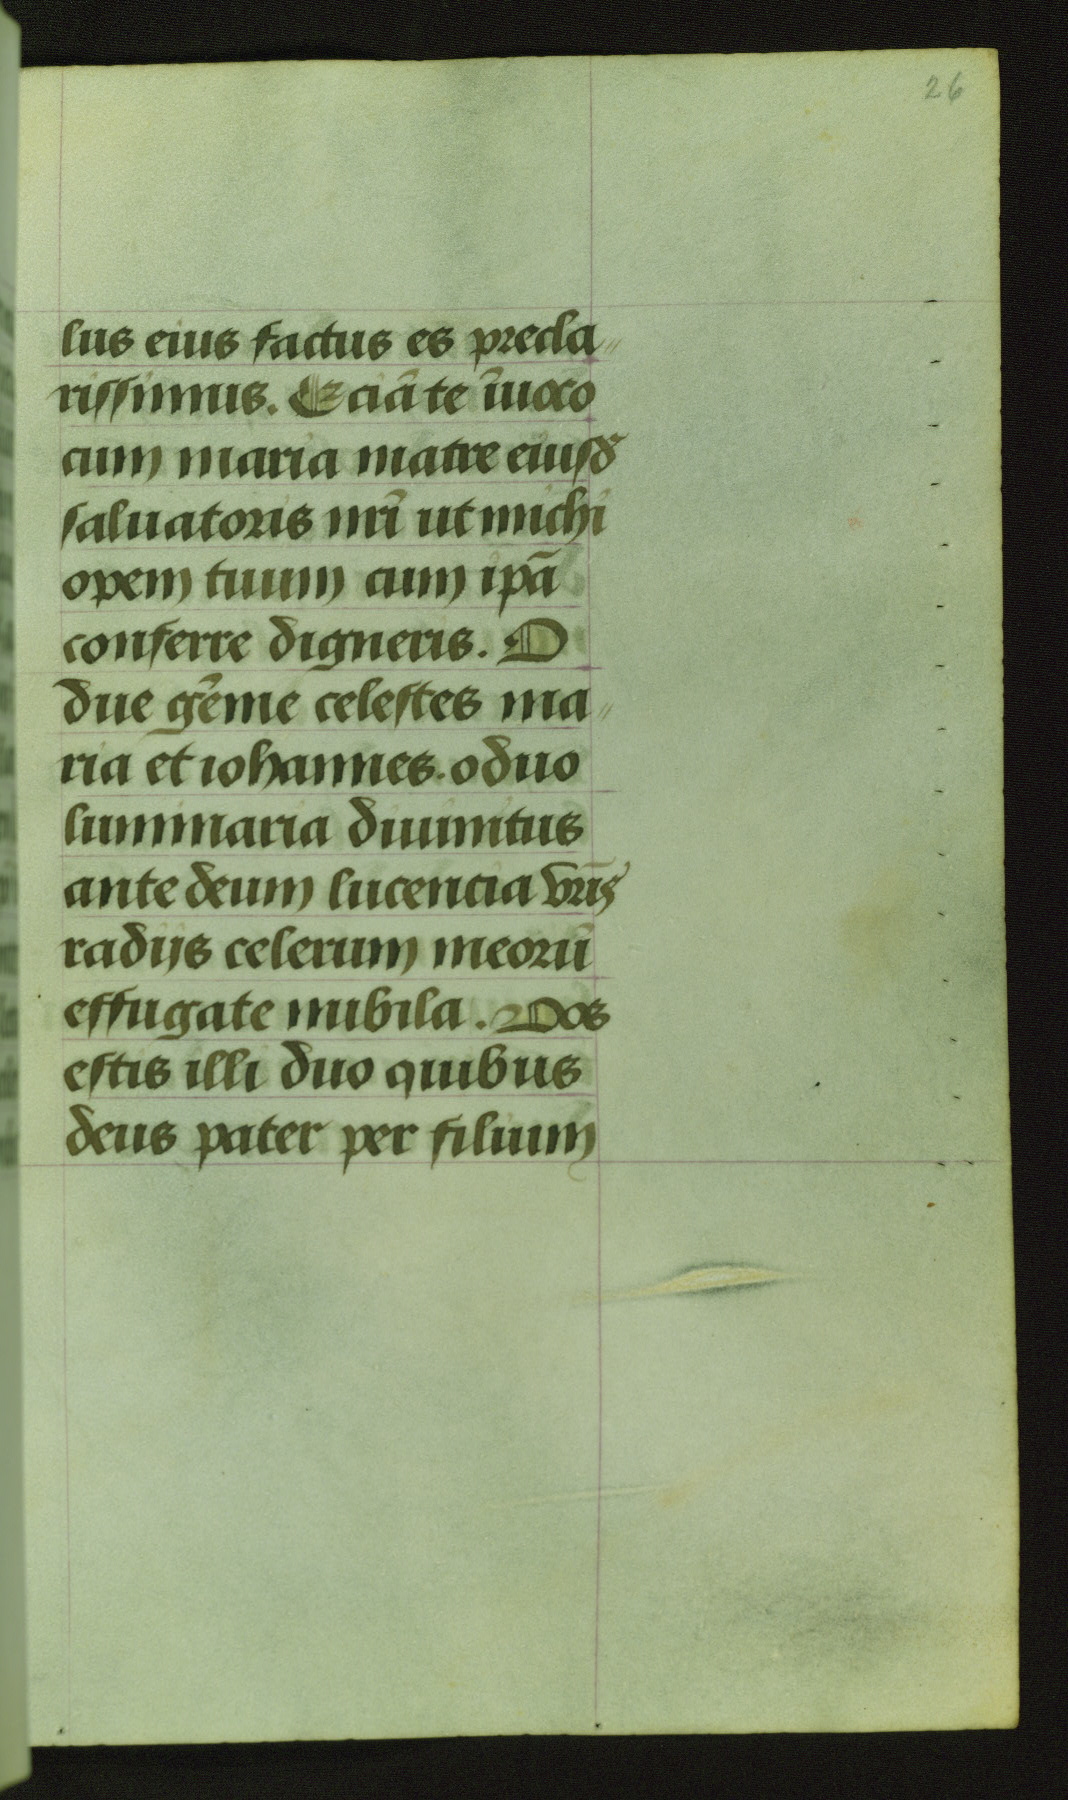 26
lus eius factus es precla„
rissimus. Eciā te īuoco
cum maria matre eiusd̄
saluatoris nr̄i ut michi
opem tuum cum ip̄a
conferre digneris. O
due gēme celestes ma„
ria et iohannes. o duo
luminaria diuinitus
ante deum lucencia vr̄is
radijs celerum meorū
effugate nubila. Vos
estis illi duo quibus
deus pater per filium